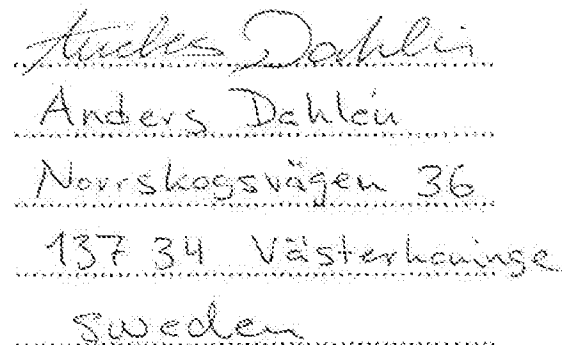 Anders Dahlén
Anders Dahlén
Norrskogsvägen 36
137 34 Västerhaninge
Sweden